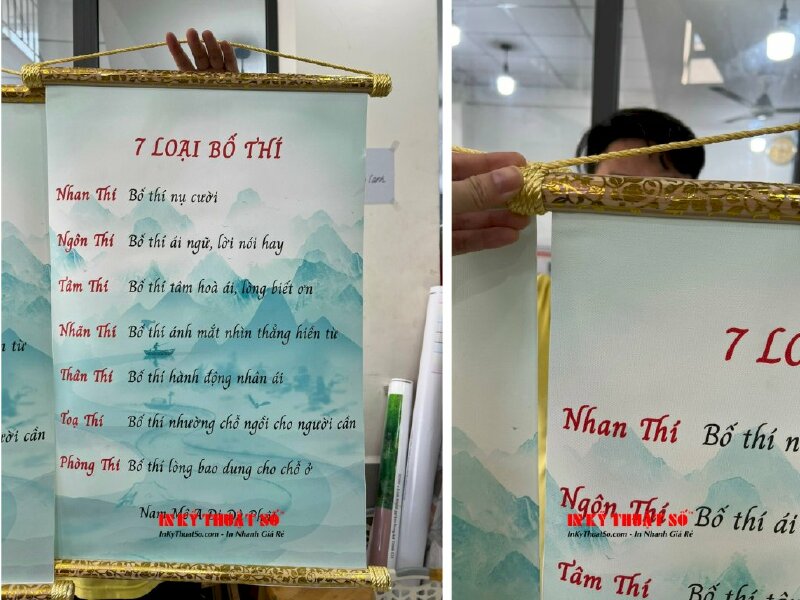 7 LOẠI BỐ THÍ
Nhan Thí Bố thí nụ cười
Ngôn Thí Bố thí ái ngữ, lời nói hay
Tâm Thí Bố thí tâm hoà ái, lòng biết ơn
Nhãn Thí Bố thí ánh mắt nhìn thẳng hiền từ
Thân Thí Bố thí hành động nhân ái
Toạ Thí Bố thí nhường chỗ ngồi cho người cần
Phòng Thí Bố thí lòng bao dung cho chỗ ở
Nam Mô A Di Đà Phật
IN KỸ THUẬT SỐ
InKyThuatSo.com - In Nhanh Giá Rẻ
từ
ời cần
7 LO
Nhan Thí Bố thí n
Ngôn Thí Bố thí ái
IN KỸ THUẬT SỐ
InKyThuatSo.com - In Nhanh Giá Rẻ
Tâm Thí Bố thí